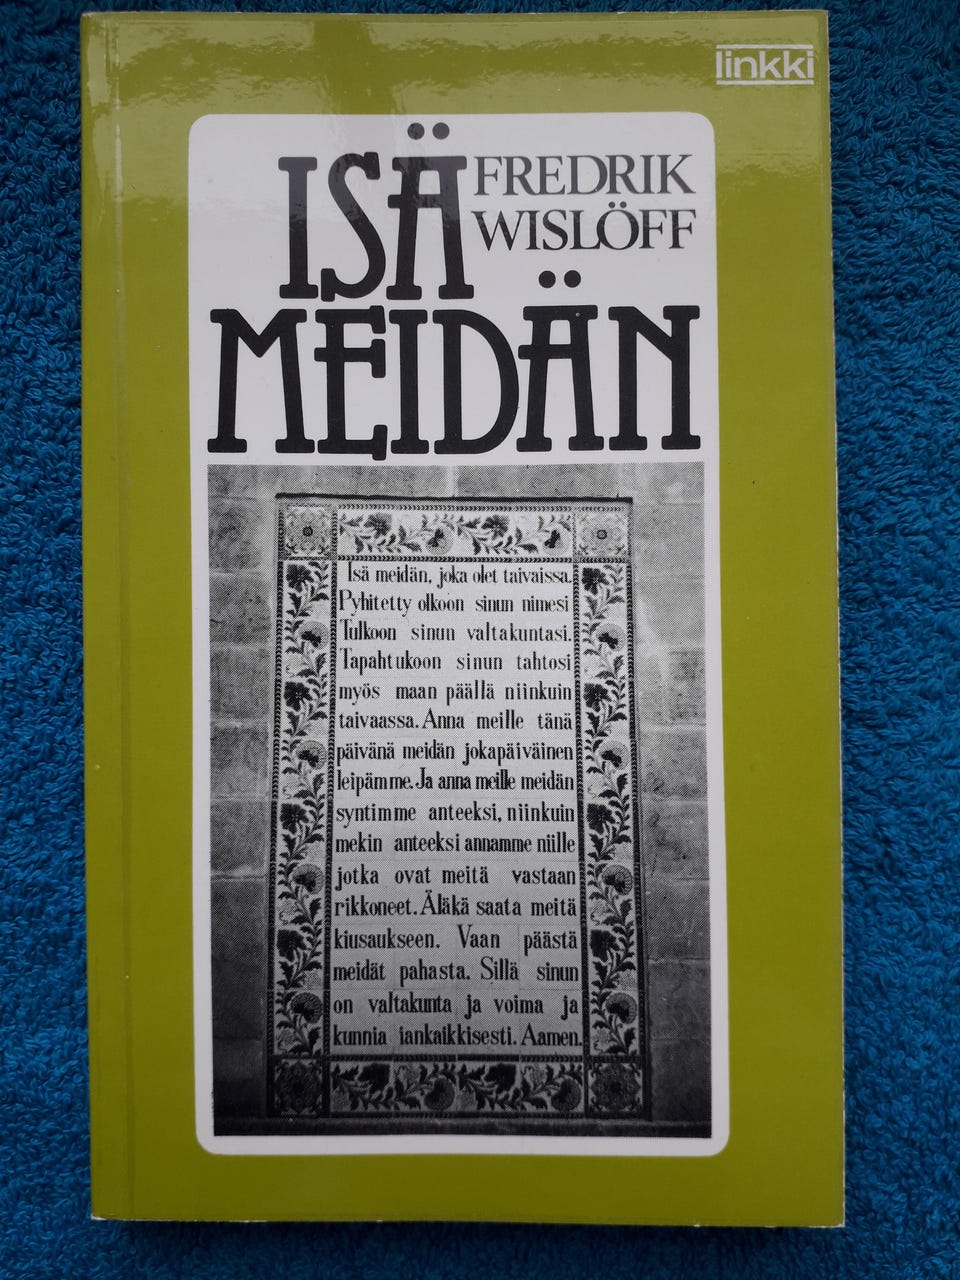 linkki
ISÄ
MEIDÄN
FREDRIK
WISLÖFF
Isä meidän, joka olet taivaissa.
Pyhitetty olkoon sinun nimesi
Tulkoon sinun valtakuntasi.
Tapahtukoon sinun tahtosi
myös maan päällä niinkuin
taivaassa. Anna meille tänä
päivänä meidän jokapäiväinen
leipämme. Ja anna meille meidän
syntimme anteeksi, niinkuin
mekin anteeksi annamme niille
jotka ovat meitä vastaan
rikkoneet. Äläkä saata meitä
kiusaukseen. Vaan päästä
meidät pahasta. Sillä sinun
on valtakunta ja voima ja
kunnia iankaikkisesti. Aamen.